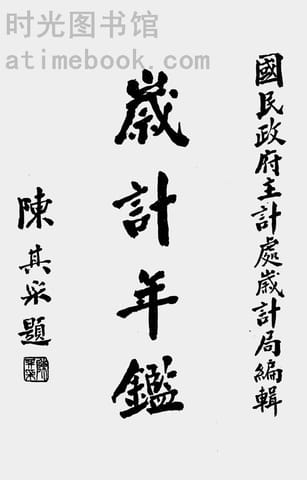 时光图书馆
atimebook.com
國民政府主計處歲計局編輯
歲計年鑑
陳其采題